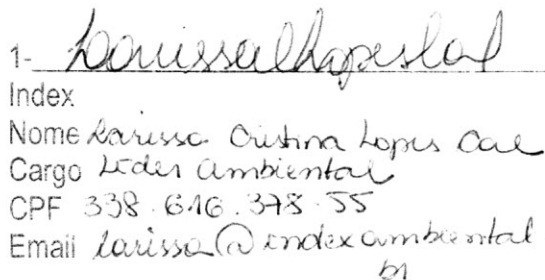 1- Larissa C Lopes Cal
Index
Nome Larissa Cristina Lopes Cal
Cargo Líder Ambiental
CPF 338.616.378-55
Email larissa@indexambiental
br